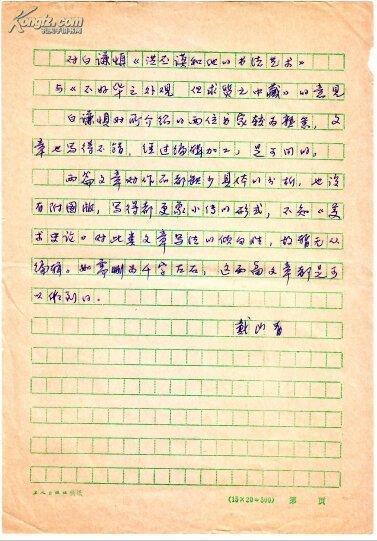 Kongfz.com
对白谦慎《洪丕谟和他的书法艺术》
与《不好华之外观 但求质之中藏》的意见
白谦慎对所介绍的两位书家较为熟悉，文
章也写得不错，经过编辑加工，是可用的。
两篇文章对作品都缺少具体的分析，也没
有附图版，写得都更象小传的形式，不知《美
术史论》对此类文章写法的倾向性，故暂无从
编辑。如需删为千字左右，这两篇文章都是可
以做到的。
戴山青
工人出版社稿纸
(15×20=300) 第 页